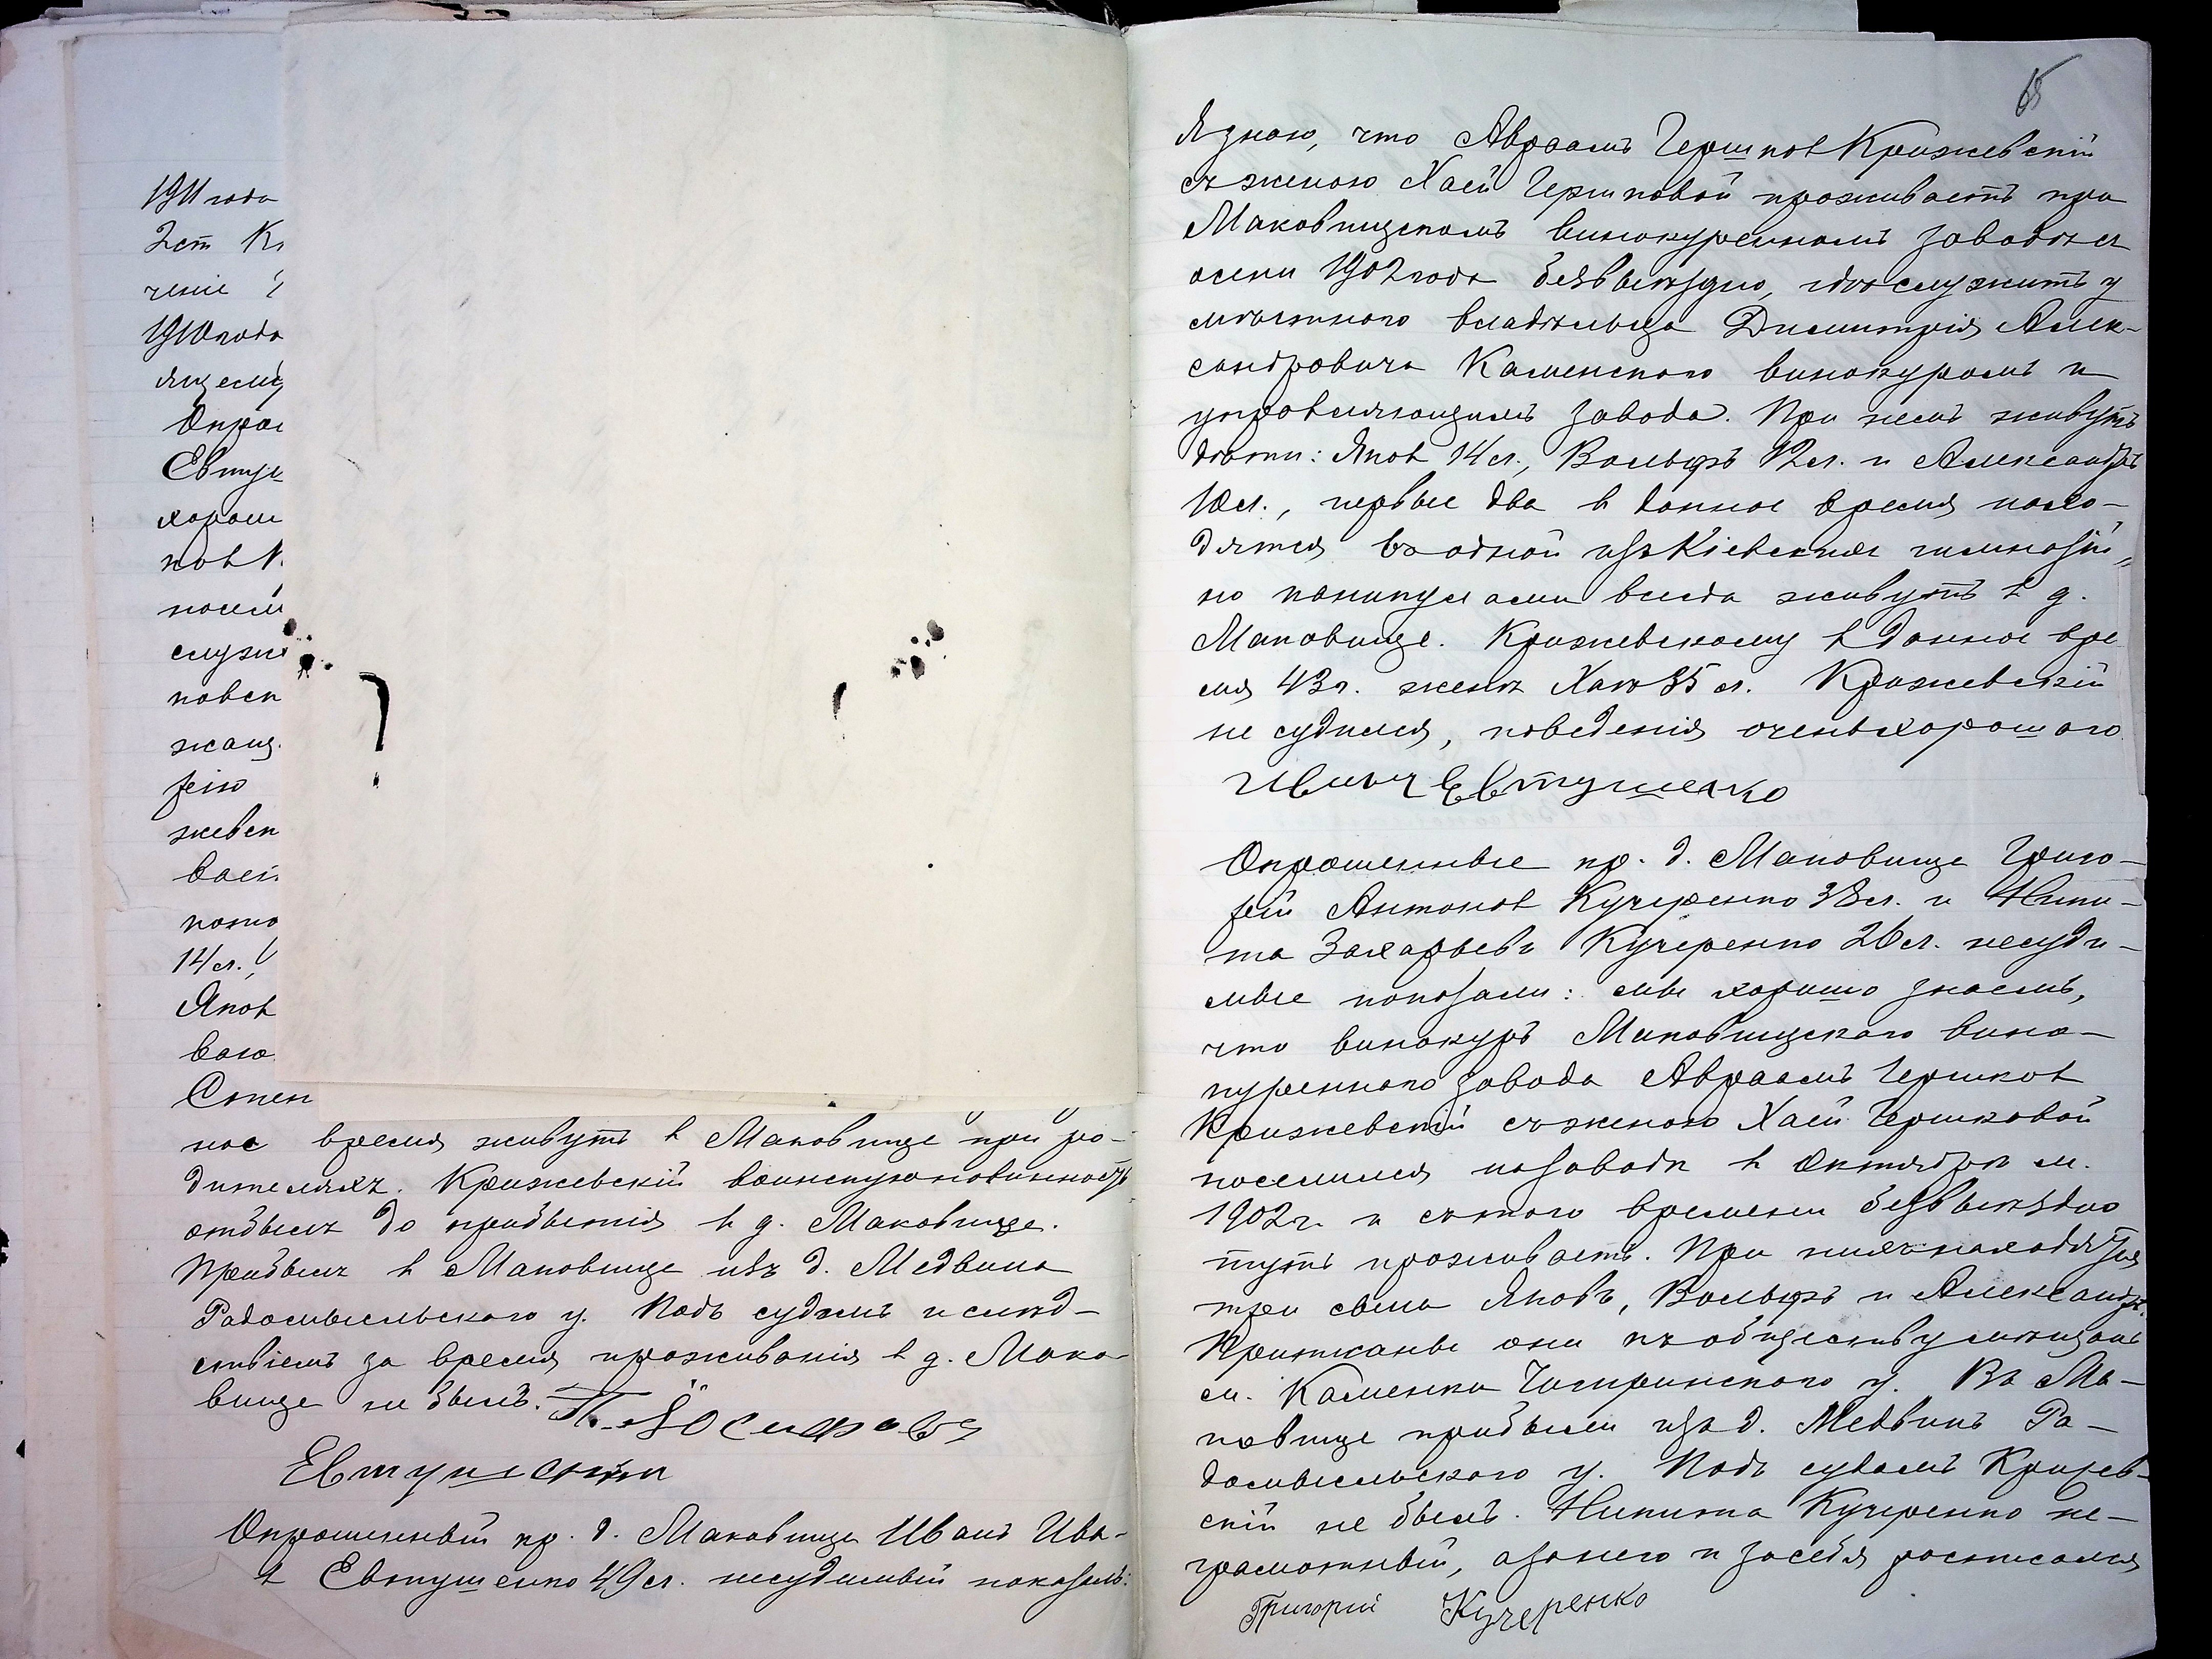 1911 года
2 ст Кі
ченіе
1910 года
ящему
Опро
Евтуш
хорош
ков К
посели
служи
ковск
жащ
зею
жевск
вает
пото
14 л.,
Яков
ваю
Стен
ное время живутъ в Маковище при ро-
дителяхъ. Крижевскій воинскую повинность
отбылъ до прибытія в д. Маковище.
Прибылъ в Маковище изъ д. Медвина
Радомысльского у. Подъ судомъ и след-
ствіемъ за время проживанія в д. Мако-
вище не былъ.
Опрошенный кр. д. Маковище Иванъ Ива-
в Евтушенко 49 л. несудимый показалъ:
65
Я знаю, что Авраамъ Гершков Крижевскій
съ женою Хаей Гершковой проживаетъ при
Маковищскомъ винокуренномъ заводѣ съ
осени 1902 года безвыѣздно, гдѣ служитъ у
мѣстного владѣльца Димитрія Алек-
сандровича Каменского винокуромъ и
управляющимъ завода. При немъ живутъ
дѣти: Яков 14 л., Вольфъ 12 л. и Александръ
10 л., первые два в данное время нахо-
дятся въ одной изъ Кіевских гимназій,
но каникулами всегда живутъ в д.
Маковище. Крижевскому в данное вре
мя 43 г. женѣ Хаѣ 35 л. Крижевскій
не судился, поведенія очень хорошого
Иванъ Евтушенко
Опрошенные кр. д. Маковище Григо-
рій Антонов Кучеренко 38 л. и Ники-
та Захарьевъ Кучеренко 26 л. несуди-
мые показали: мы хорошо знаемъ,
что винокуръ Маковищского вино-
куренного завода Авраамъ Гершков
Крижевскій съ женою Хаей Гершковой
поселился на заводѣ в Октябрѣ м.
1902 г. и съ того времени безвыѣздно
тутъ проживаетъ. При нихъ находятся
три сына Яковъ, Вольфъ и Александръ.
Приписаны они къ обществу мѣщанъ
м. Каменки Чигиринского у. Въ Ма-
ковище прибыли изъ д. Медвинъ Ра-
домысльского у. Подъ судомъ Крижев-
скій не былъ. Никита Кучеренко не-
грамотный, а за него и за себя росписался
Григорій Кучеренко